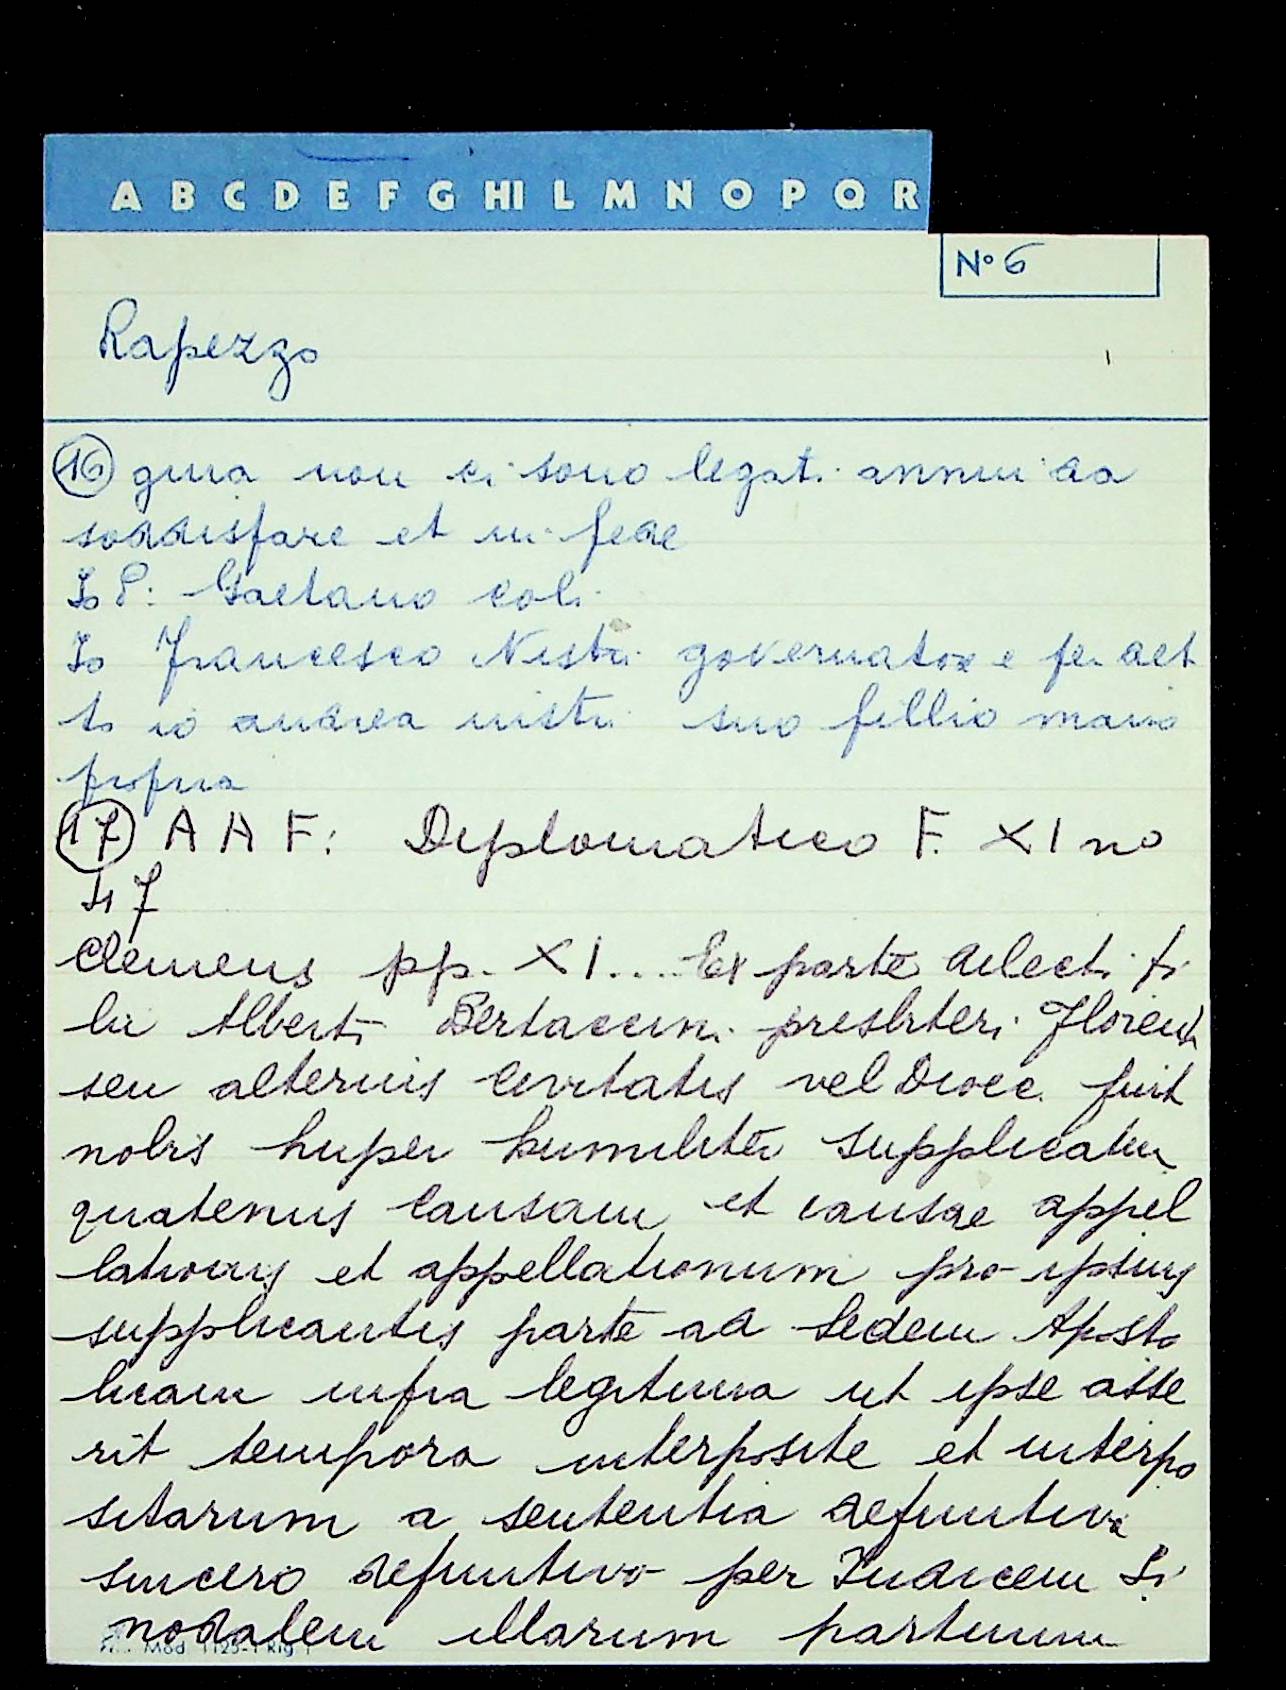 A B C D E F G HI L M N O P Q R
N° 6
Rapezzo
16 gura non ci sono legati annui da
soddisfare et in fede
Io P: Gaetano coli
Io Francesco Nistri governatore fei det
to io andrea nistri suo fillio mano
propria
17 A A F: Diplomatico F. XI no
47
Clemens pp. XI.... Ex parte dilecti fi
lii Alberti Bertaccini presbiteri Florent
seu alterius Civitatis vel Dioec. fuit
nobis huper humiliter supplicatu
quatenus Causam et causae appel
lationis et appellationum pro ipsius
supplicantis parte ad Sedem Aposto
licam infra legitima ut ipse asse
rit tempora interposite et interpo
sitarum a sententia definitiva
sincero definitivo per Iudicem Si
nodalem illarum partium
Mod. 1125-1 Rig